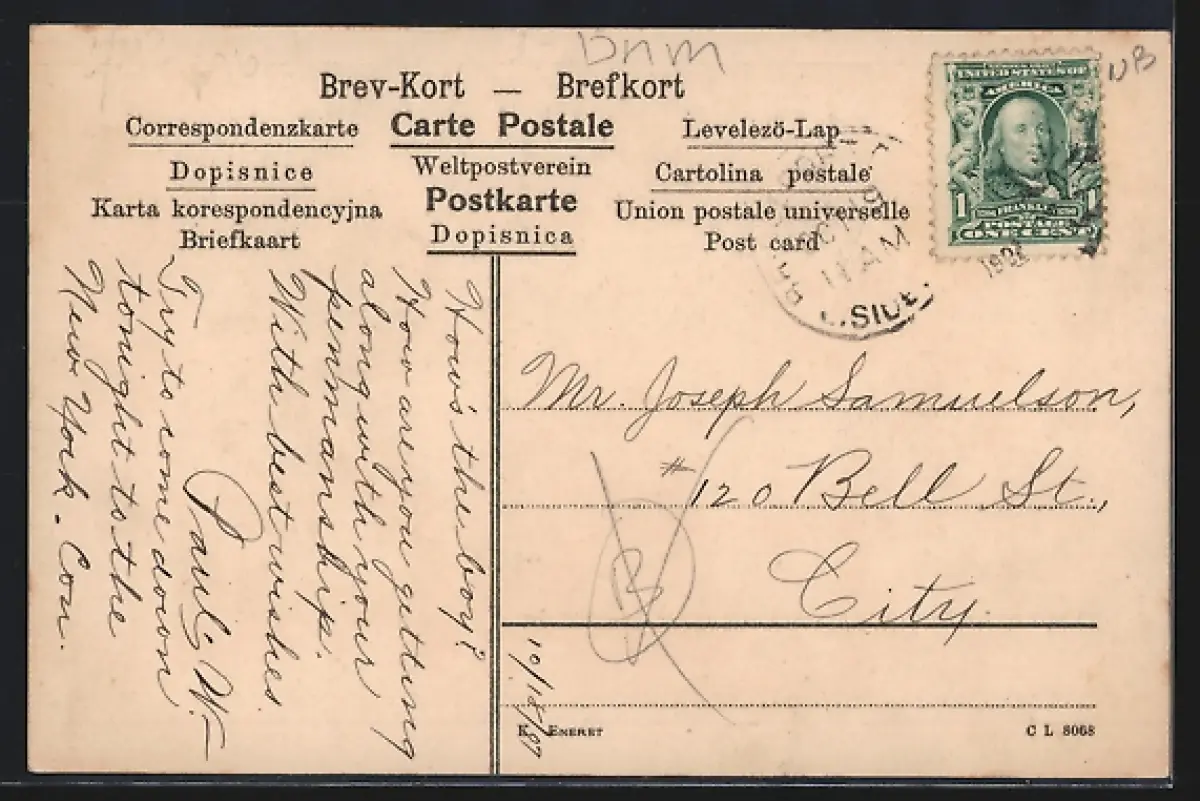 DnM
NB
Brev-Kort — Brefkort
Correspondenzkarte
Carte Postale
Levelezö-Lap
Dopisnice
Weltpostverein
Cartolina postale
Karta korespondencyjna
Postkarte
Union postale universelle
Briefkaart
Dopisnica
Post card
UNITED STATES OF
AMERICA
1 FRANKLIN 1
POSTAGE
ONE CENT
OCT 19
11 AM
SIDE
How's the boy?
How are you getting
along with your
penmanship.
With best wishes.
Paul. W.—
Try to come down
tonight to the
New York. Con.
Mr. Joseph Samuelson,
# 120 Bell St.,
City.
10/18/07
K. Eneret
C L 8068